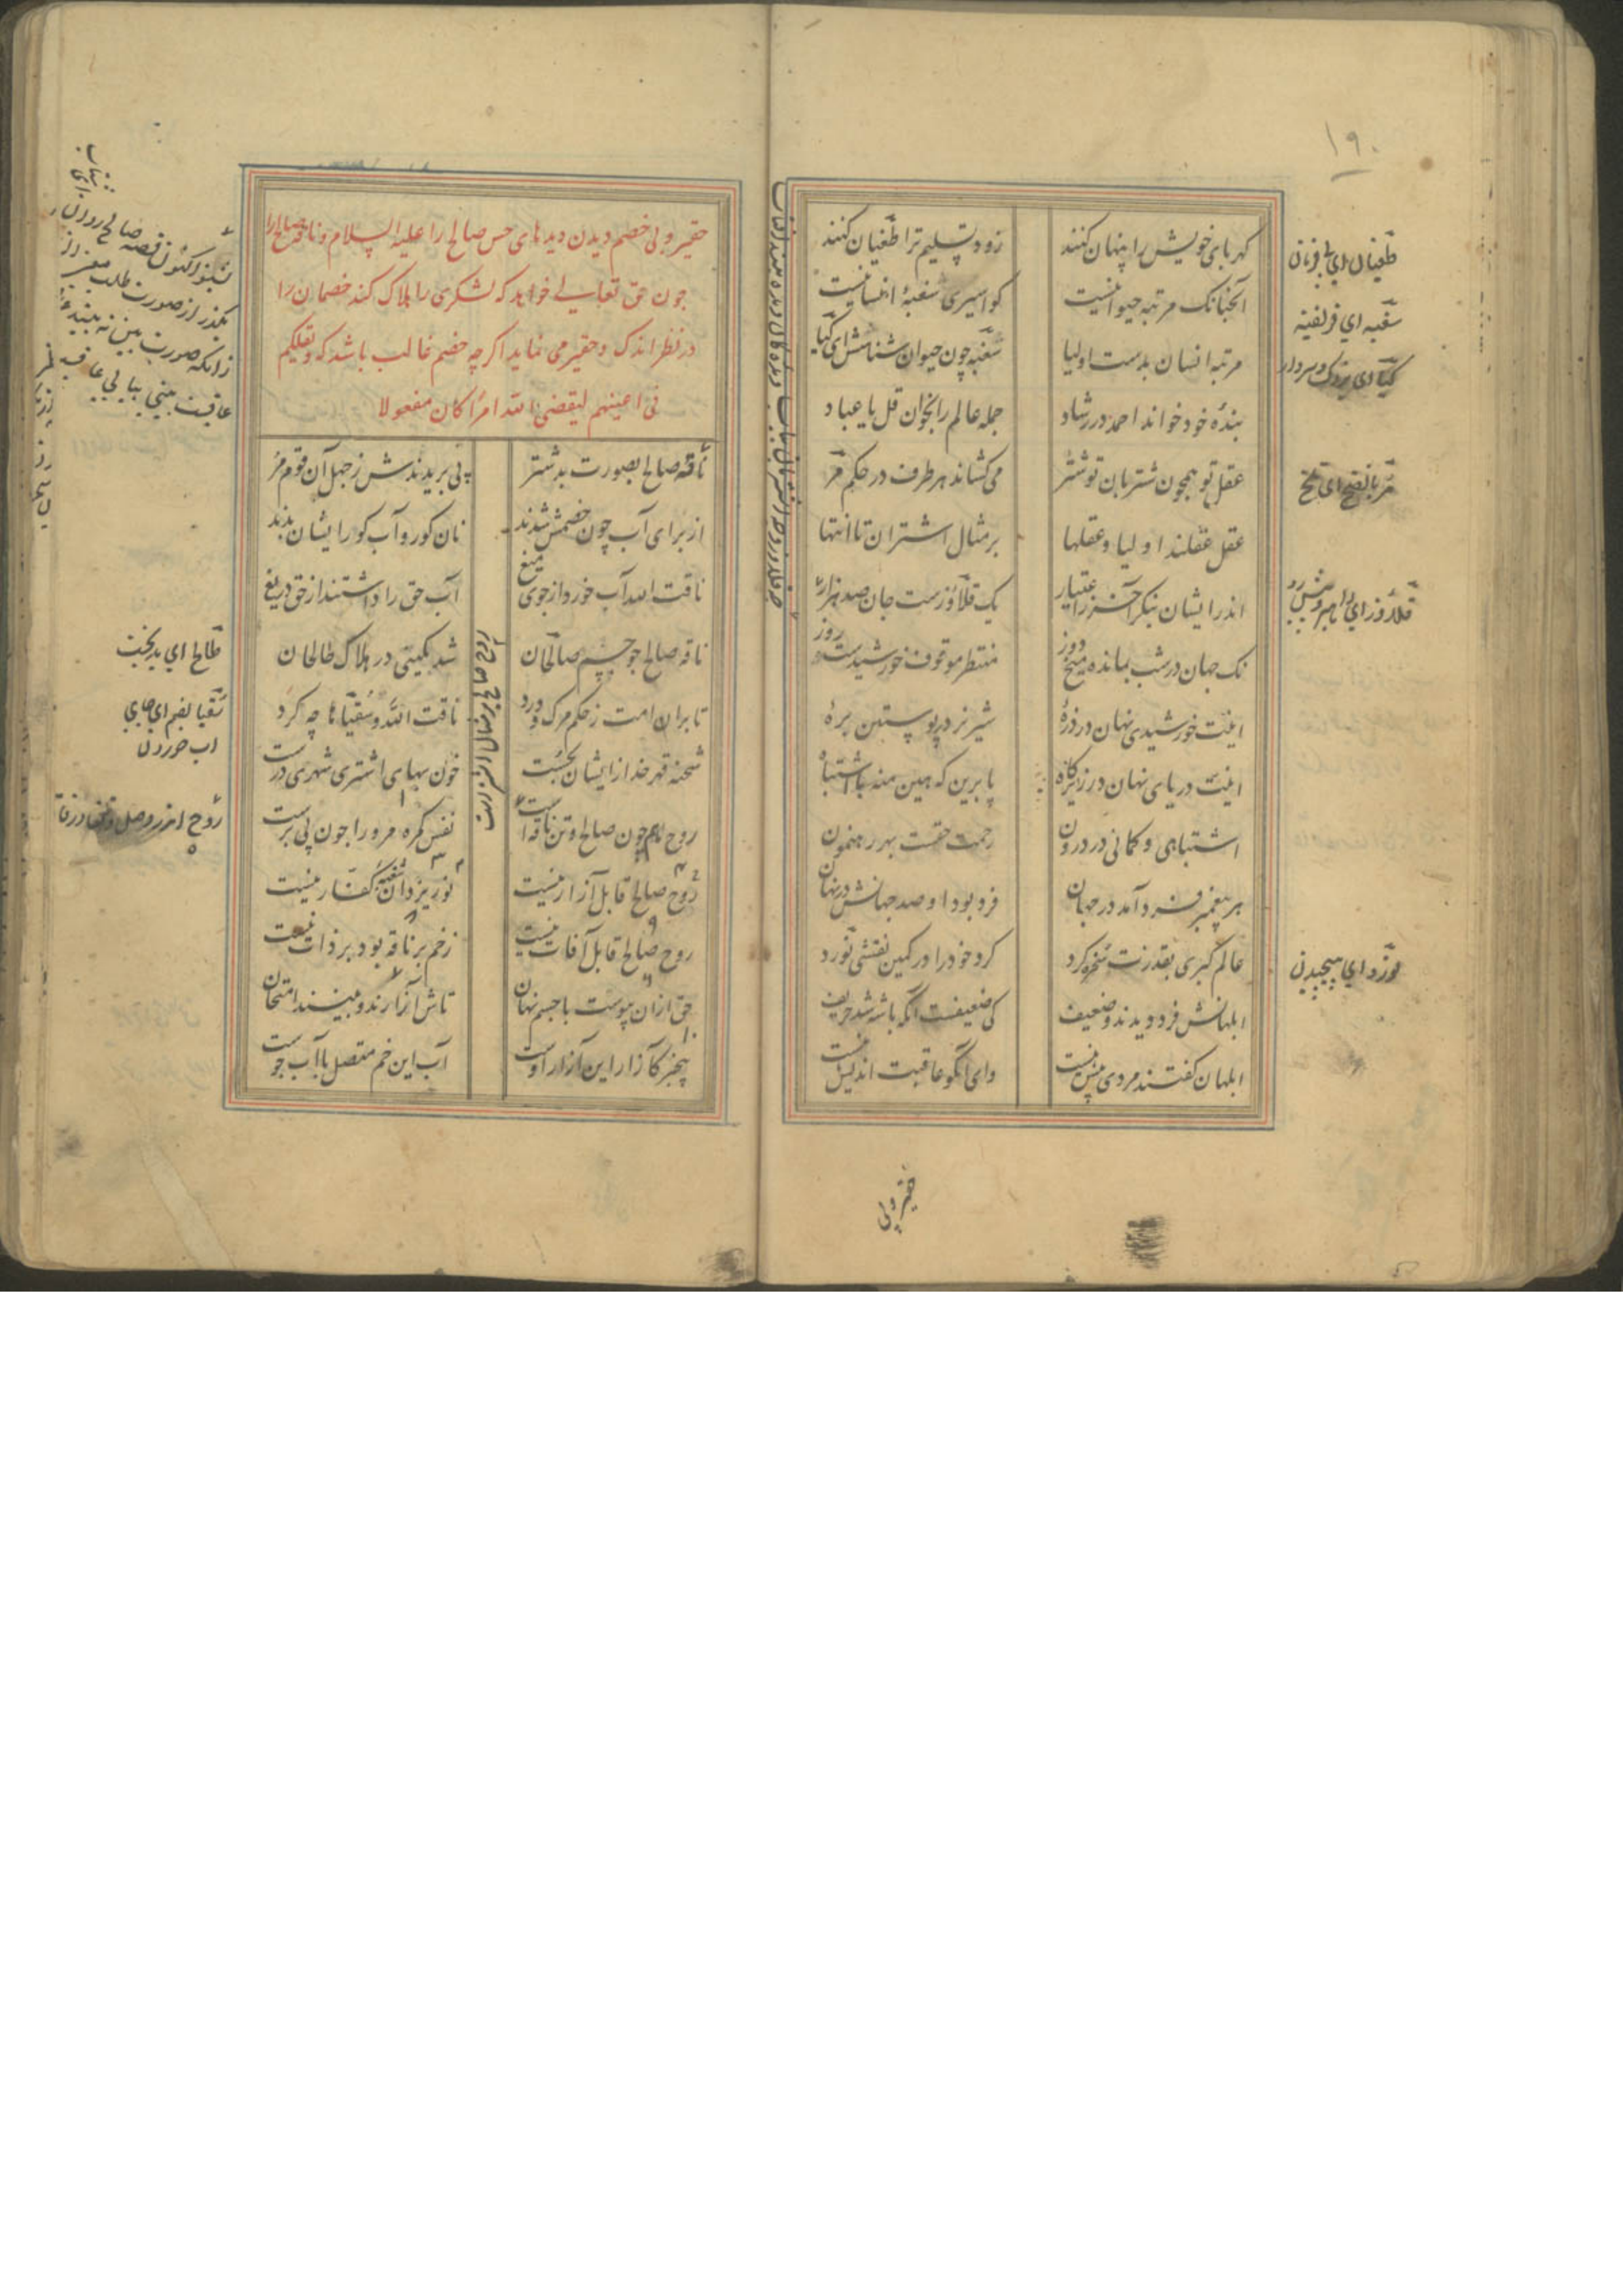 ۱۹۰
کهربای خویش را پنهان کنند زود تسلیم ترا طغیان کنند
آنچنانک مرتبه حیوانیست کو اسیری سغبهٔ انسانیست
مرتبه انسان بدست اولیا سغبه چون حیوان شناسش ای کیا
بندهٔ خود خواند احمد در رشاد جمله عالم را بخوان قل یا عباد
عقل تو همچون شتربان تو شتر می کشاند هر طرف در حکم مر
عقل عقلند اولیا و عقلها بر مثال اشتران تا انتها
اندر ایشان بنگر آخر ز اعتبار یک قلاوزست جان صد هزار
نک جهان در شب بمانده میخ دوز منتظر موقوف خورشیدست روز
اینت خورشیدی نهان در ذرهٔ شیر نر در پوستین برهٔ
اینت دریای نهان در زیر کاه پا برین که هین منه با اشتباه
اشتباهی و کمانی در درون رحمت حقست بهر رهنمون
هر پیغمبر فرد آمد در جهان فرد بود او صد جهانش در نهان
عالم کبری بقدرت سخره کرد کرد خود را در کمین نقشی نورد
ابلهانش فرد دیدند و ضعیف کی ضعیفست آنکه با شه شد حریف
ابلهان گفتند مردی بیش نیست وای آنکو عاقبت اندیش نیست
طغیان ای بی فرمانی
سغبه ای فریفته
کیا ای بزرک و سردار
مر بالفتح ای تلخ
قلاوز ای راهبر و پیش رو
نورد ای پیچیدن
حقیر و بی
حقیر و بی خصم دیدن دیدهای حس صالح را علیه السلام و ناقه صالح را
چون حق تعالی خواهد که لشکری را هلاک کند خصمان را
در نظر اندک و حقیر می نماید اگرچه خصم غالب باشد که و یقللکم
فی اعینهم لیقضی الله امرا کان مفعولا
ناقه صالح بصورت بد شتر پی بریدندش ز جهل آن قوم مر
از برای آب چون خصمش شدند نان کور و آب کور ایشان بدند
ناقت الله آب خورد از جوی میغ آب حق را داشتند از حق دریغ
ناقه صالح چو جسم صالحان شد کمینی در هلاک طالحان
تا بران امت ز حکم مرک و درد ناقت الله و سقیاها چه کرد
شحنه قهر خدا زیشان بجست خون بهای اشتری شهری درست
روح همچون صالح و تن ناقه است نفس کمره مر ورا چون پی برست
روح صالح قابل آزار نیست نور یزدان سغبه کفار نیست
روح صالح قابل آفات نیست زخم بر ناقه بود بر ذات نیست
حق ازان پیوست با جسم نهان تاش آزارند و بینند امتحان
بیخبر کازار این آزار اوست آب این خم متصل با آب جوست
بشنو اکنون قصه صالح روان
بگذر از صورت طلب معنی
زانکه صورت بین نه بیند
عاقبت بینی بیابی عافیت
طالح ای بدبخت
سقیا بضم ای جای
اب خوردن
روح اندر وصل و تن در فاقه